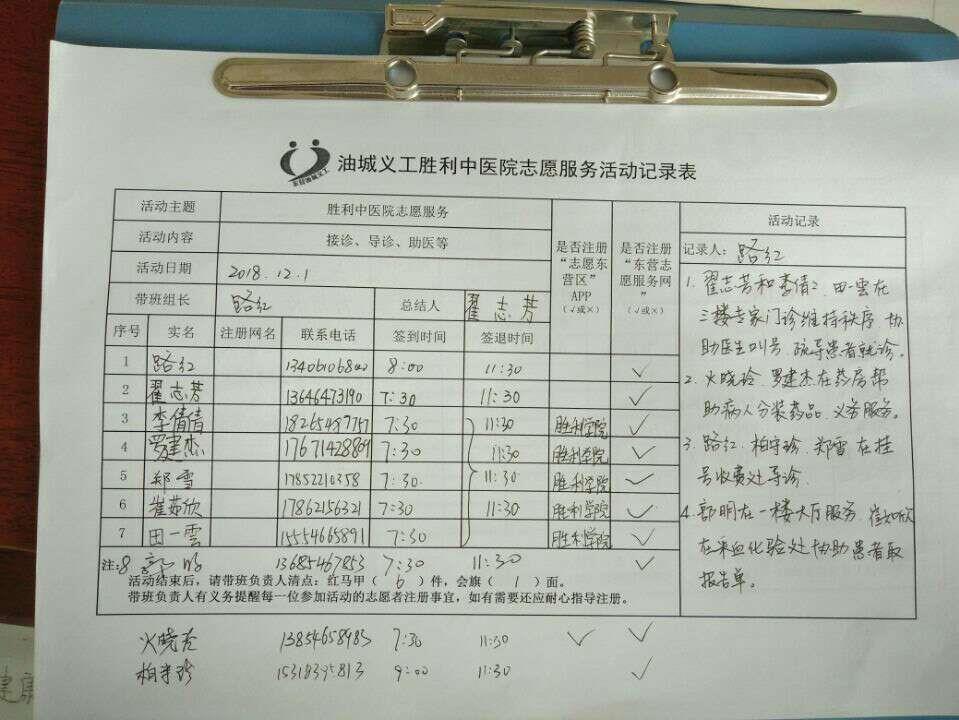 油城义工胜利中医院志愿服务活动记录表
东营油城义工
活动主题 胜利中医院志愿服务
活动内容 接诊、导诊、助医等
活动日期 2018.12.1
带班组长 路红 总结人 翟志芳
是否注册“志愿东营区”APP（√或×）
是否注册“东营志愿服务网”（√或×）
序号 实名 注册网名 联系电话 签到时间 签退时间
1 路红 8:00 11:30 √
2 翟志芳 13646473190 7:30 11:30 √
3 李倩倩 7:30 11:30 胜利学院 √
4 罗建杰 17671428809 7:30 11:30 胜利学院 √
5 郑雪 17852210358 7:30. 11:30 胜利学院 √
6 崔茹欣 17862156321 7:30 11:30 胜利学院 √
7 田一雲 15554665891 7:30 胜利学院 √
注: 8 郭明 13685467853 7:30 11:30 √
活动结束后，请带班负责人清点：红马甲（6）件，会旗（1）面。
带班负责人有义务提醒每一位参加活动的志愿者注册事宜，如有需要还应耐心指导注册。
火晓玲 13854658985 7:30 11:30 √ √
柏守珍 15318395813 9:00 11:30 √
活动记录
记录人: 路红
1. 翟志芳和李倩2. 田一雲在
三楼专家门诊维持秩序 协
助医生叫号. 疏导患者就诊。
2. 火晓玲. 罗建杰在药房帮
助病人分装药品. 义务服务。
3. 路红. 柏守珍. 郑雪 在挂
号收费处导诊.
4. 郭明在一楼大厅服务. 崔茹欣
在采血化验处协助患者取
报告单.
建康